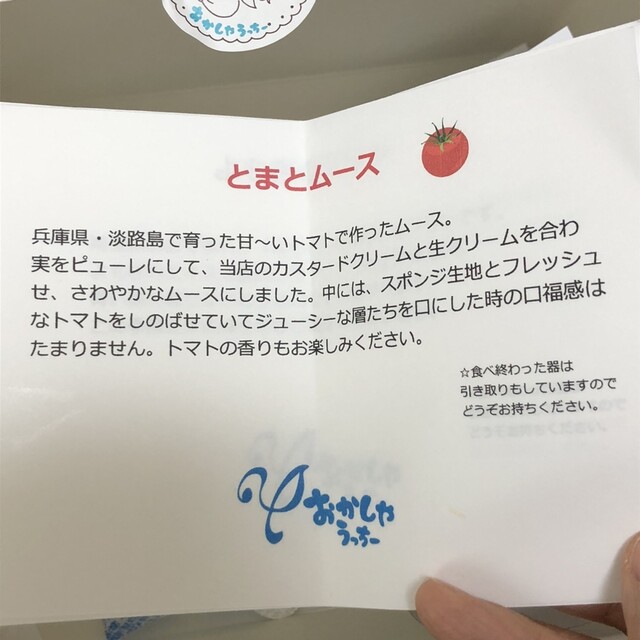 おかしやうっちー
とまとムース
兵庫県・淡路島で育った甘〜いトマトで作ったムース。
実をピューレにして、当店のカスタードクリームと生クリームを合わ
せ、さわやかなムースにしました。中には、スポンジ生地とフレッシュ
なトマトをしのばせていてジューシーな層たちを口にした時の口福感は
たまりません。トマトの香りもお楽しみください。
☆食べ終わった器は
引き取りもしていますので
どうぞお持ちください。
おかしや
うっちー